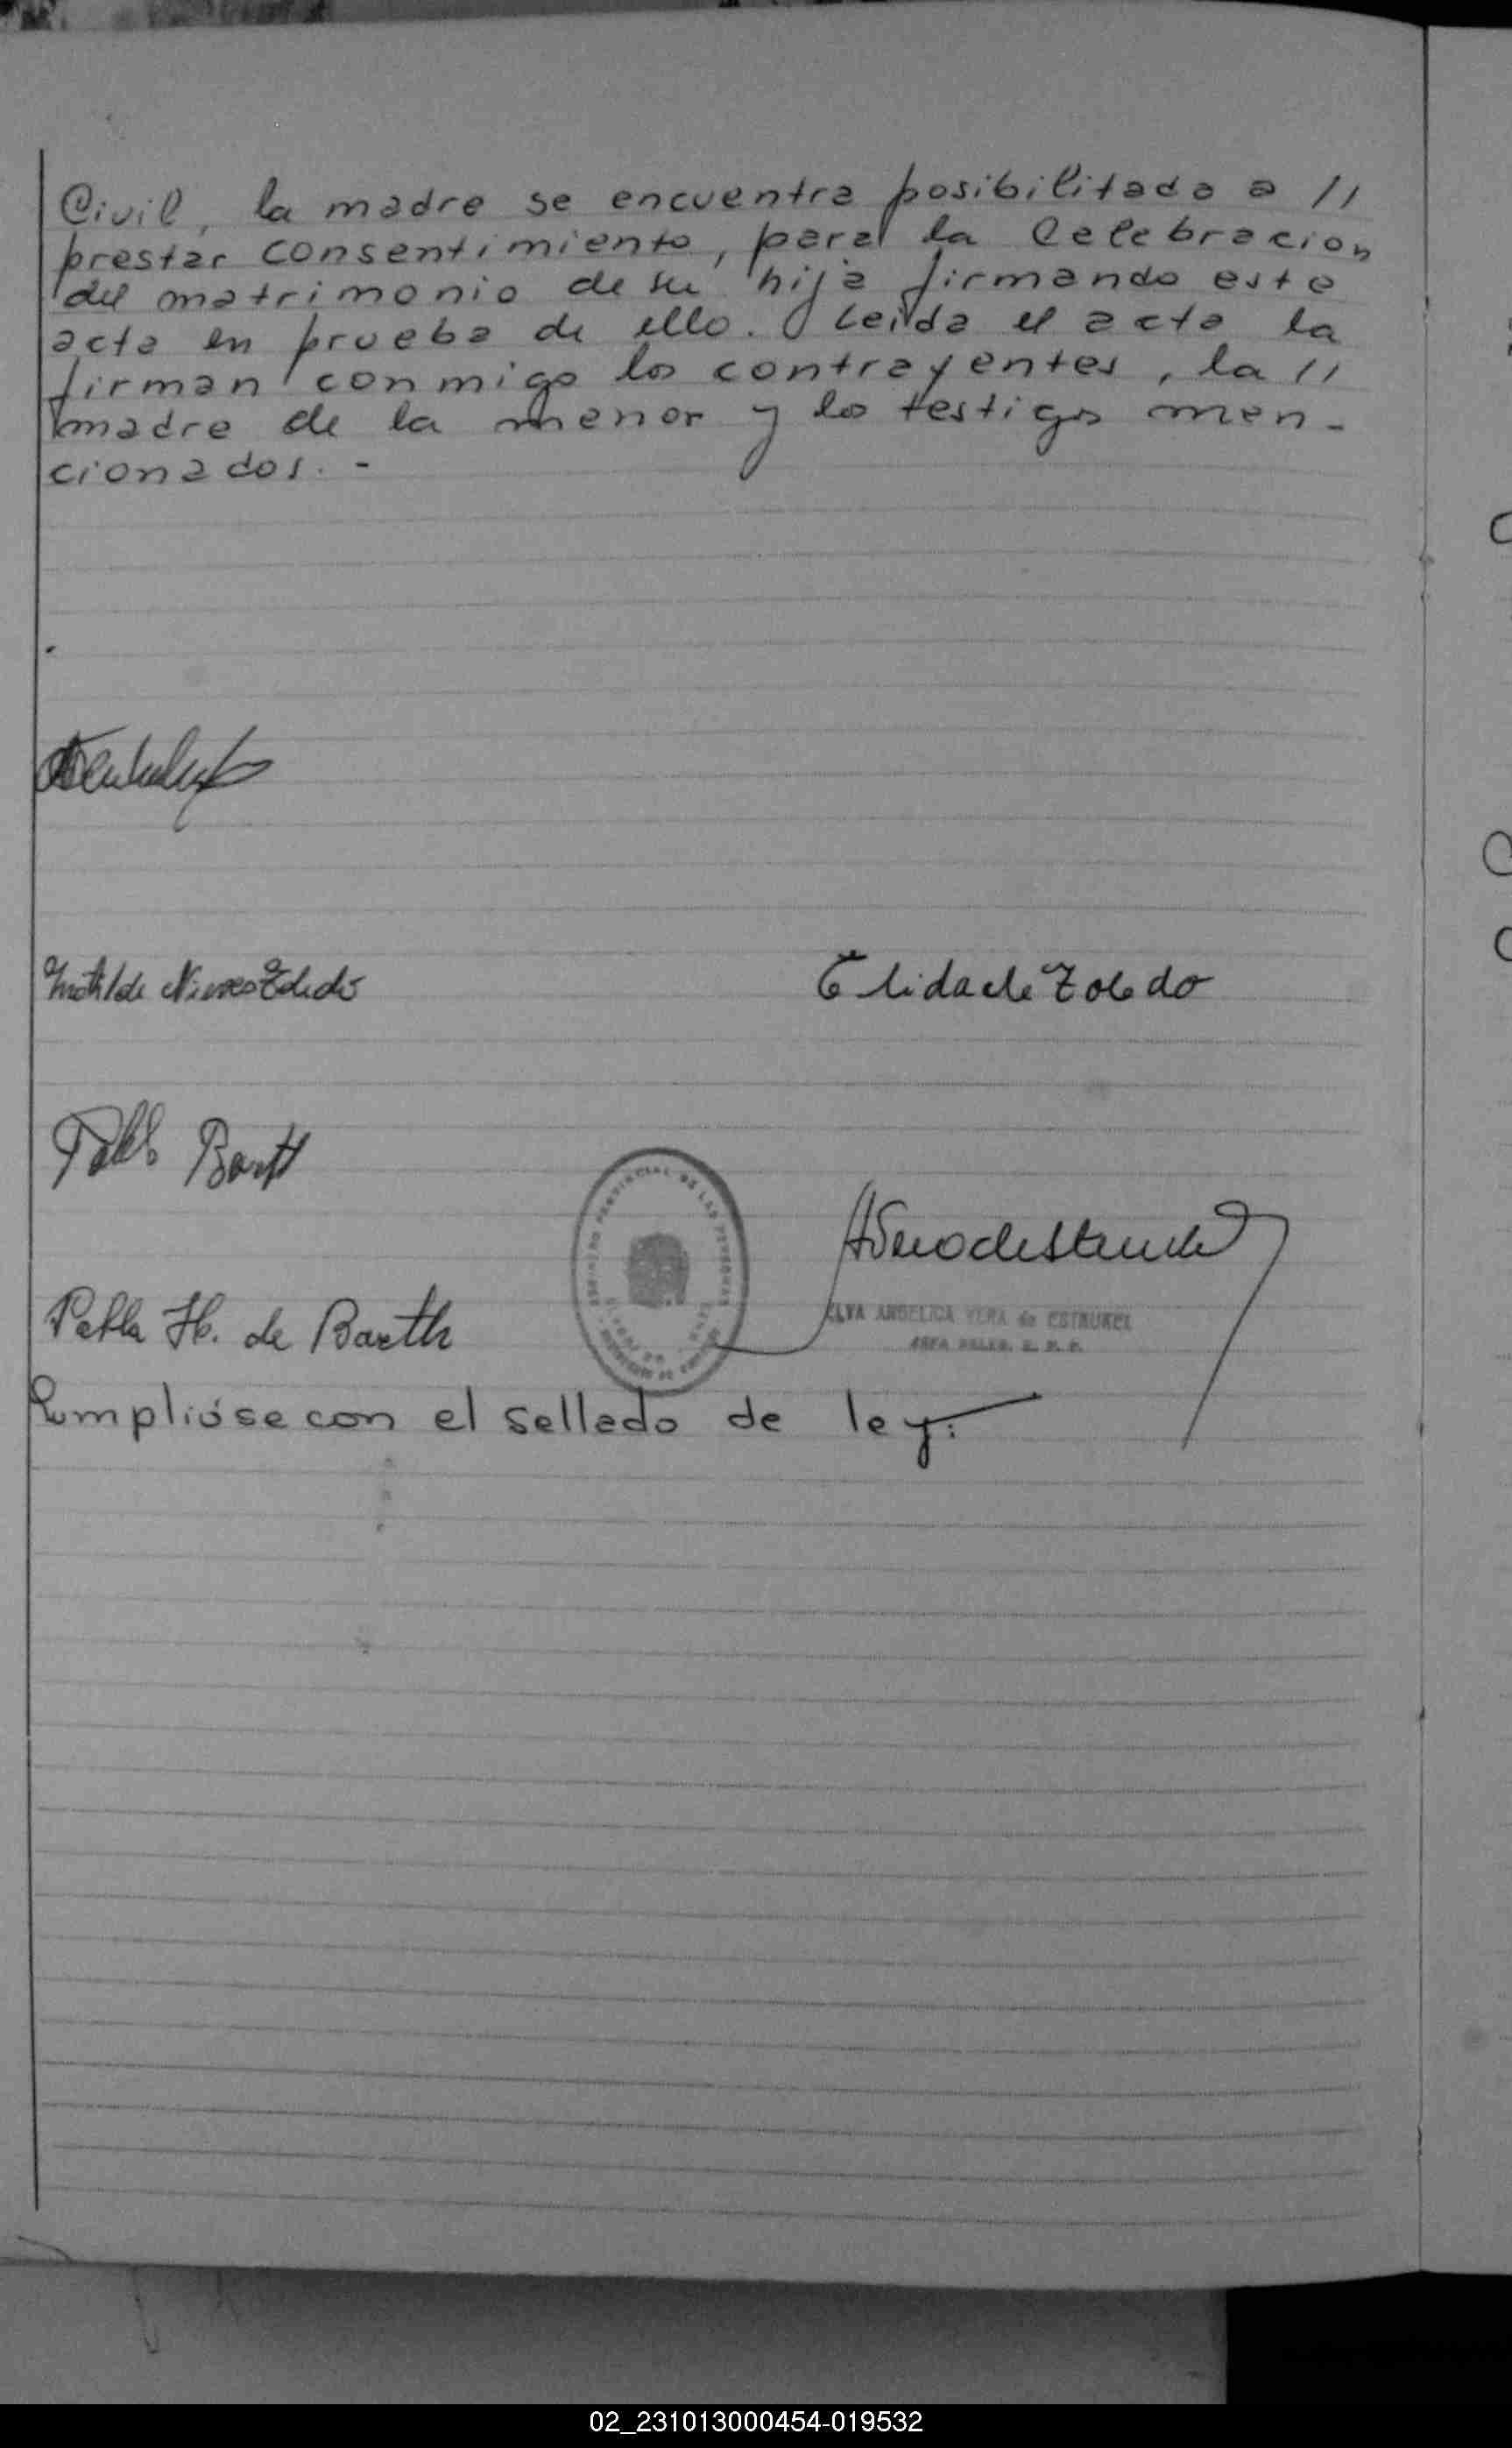 Civil, la madre se encuentra posibilitada a //
prestar consentimiento, para la Celebracion
del matrimonio de su hija firmando este
acta en prueba de ello. Leida el acta la
firman conmigo los contrayentes, la //
madre de la menor y los testigos men-
cionados. -
Matilde Nieves Toledo
Elida de Toledo
Pablo Barth
ELVA ANGELICA VERA de ESTRUKEL
Pabla H. de Barth
Cumplióse con el sellado de ley:
02_231013000454-019532